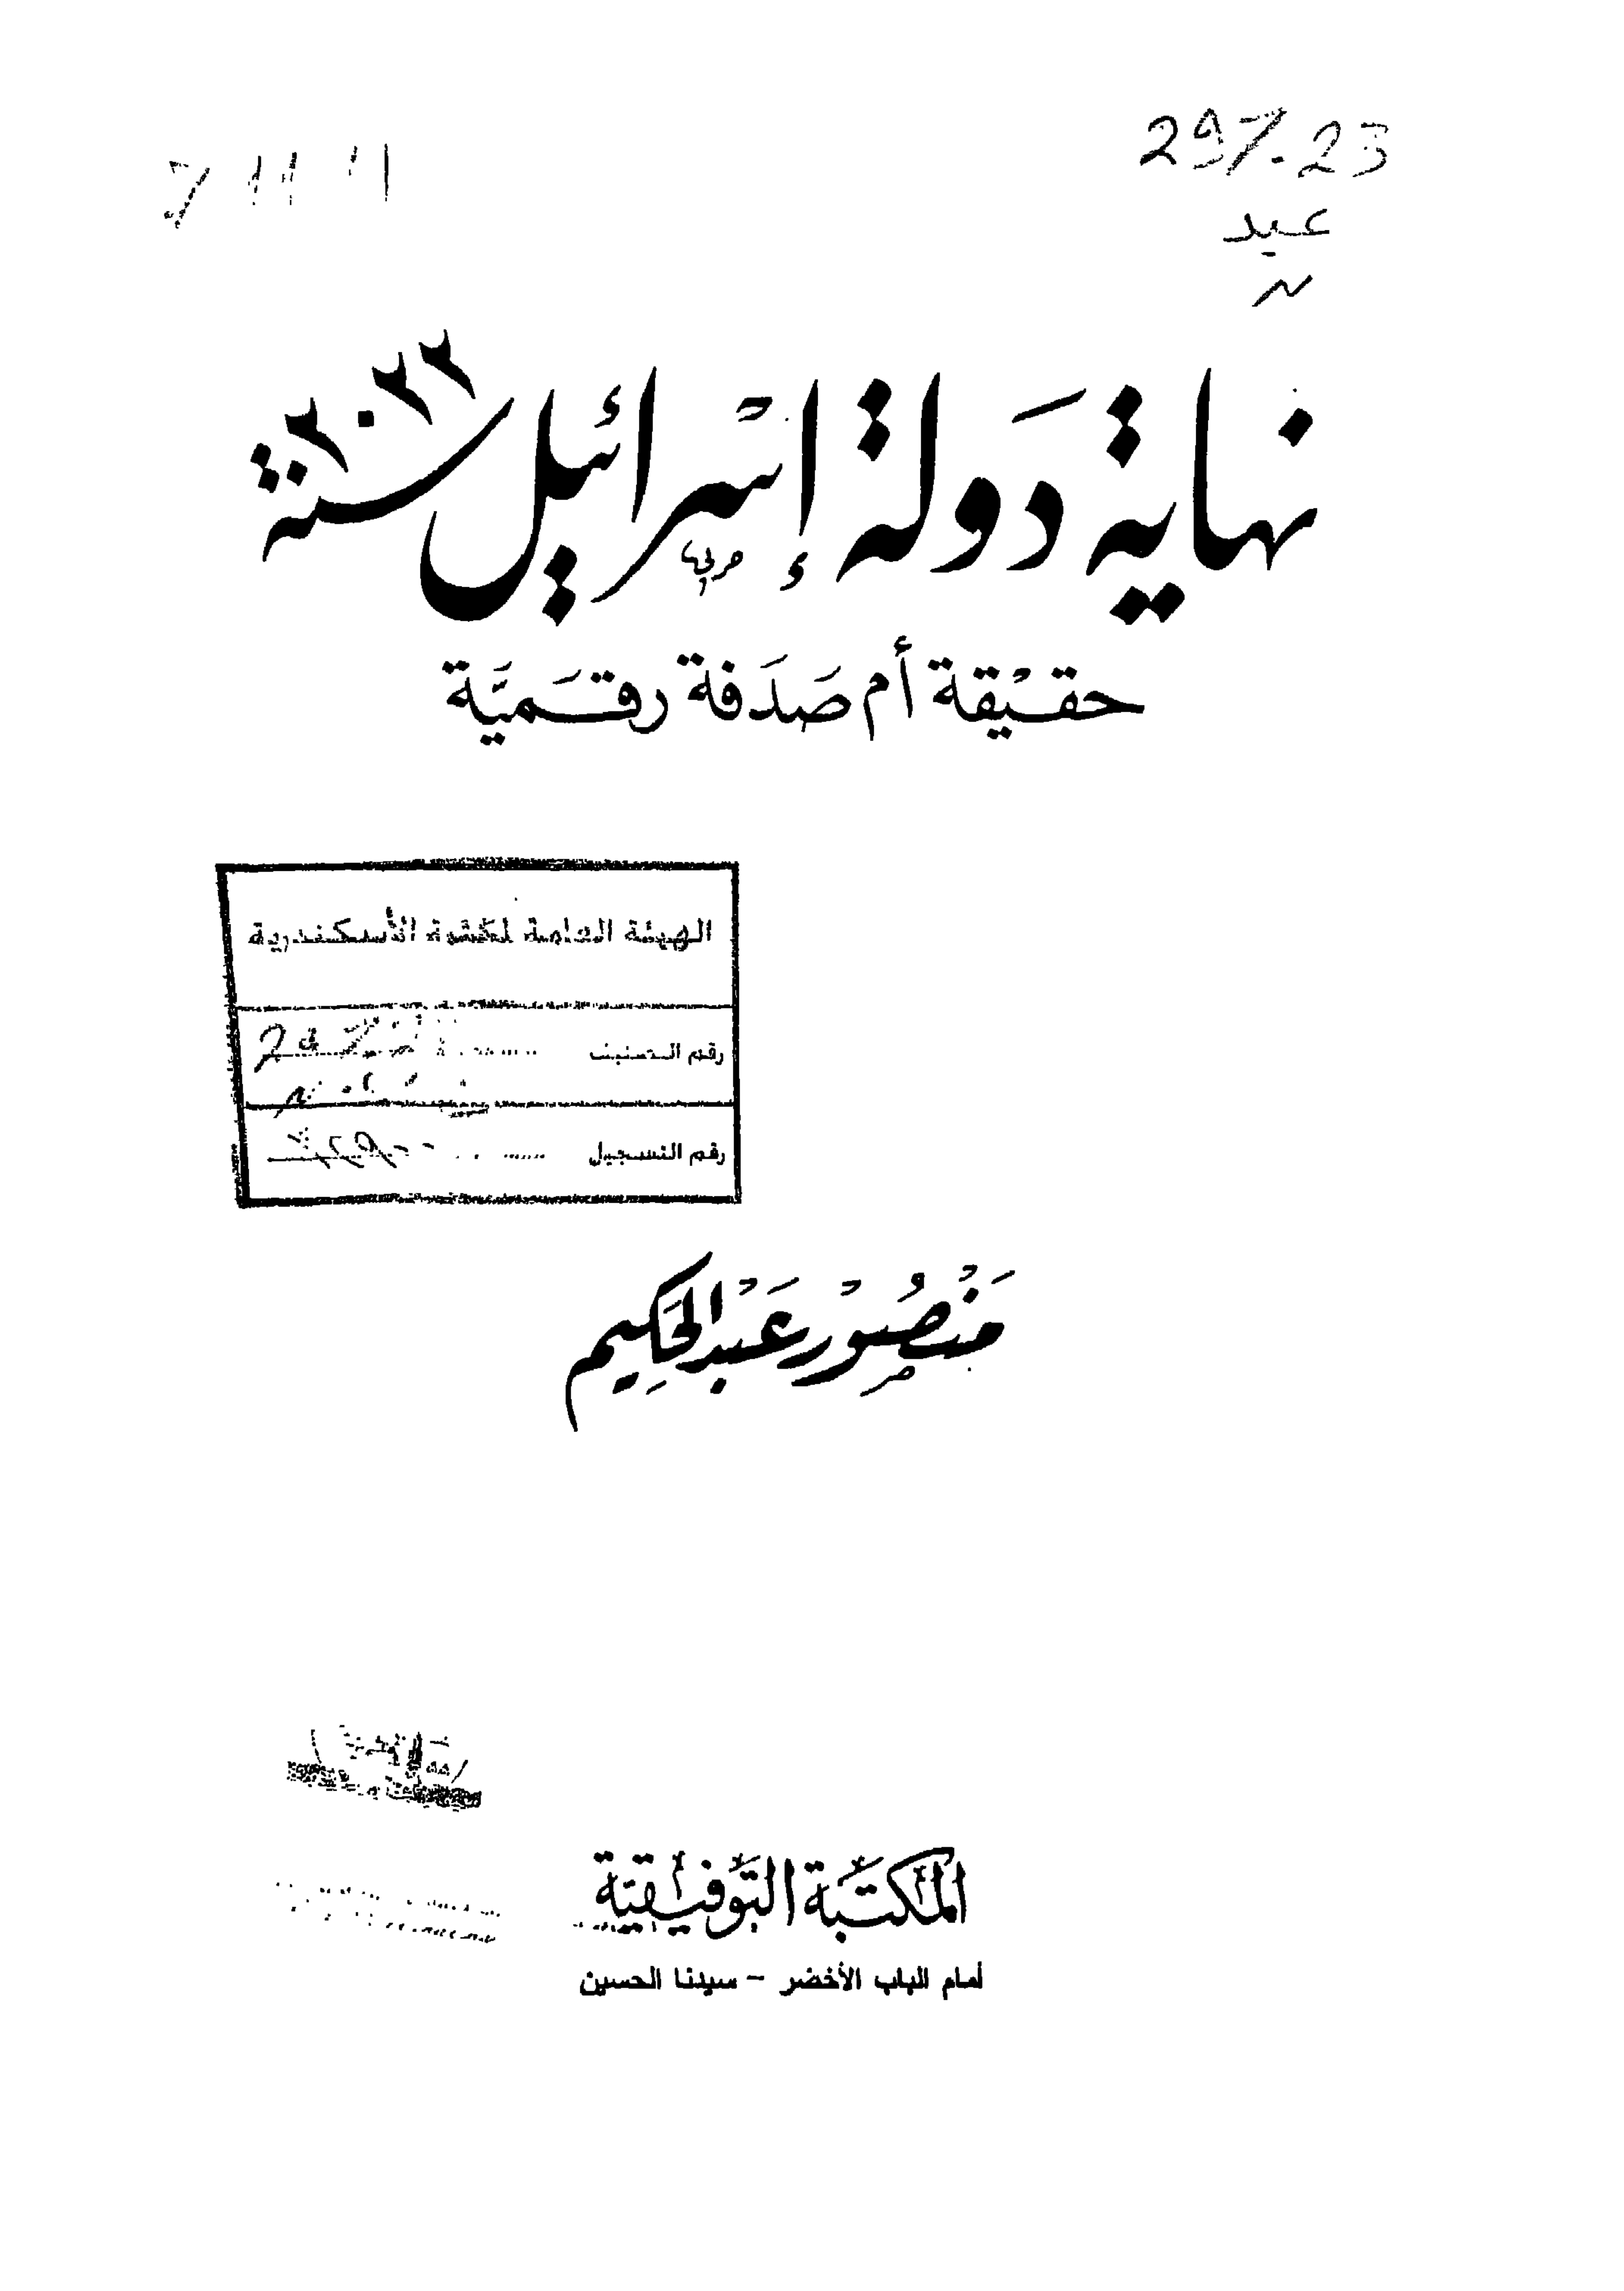 297.23
عبد
ن
نهاية دَولة إسْرائيل سنة ٢٠٢٢
حقيْقة أم صَدَفة رقَميَّة
الهيئة العامة لمكتبة الأسكندرية
رقم التصنيف
رقم التسجيل
مَنْصُورْ عَبْدالحَكِيم
المكتَبة التَّوفيقيَّة
أمام الباب الأخضر - سيدنا الحسين